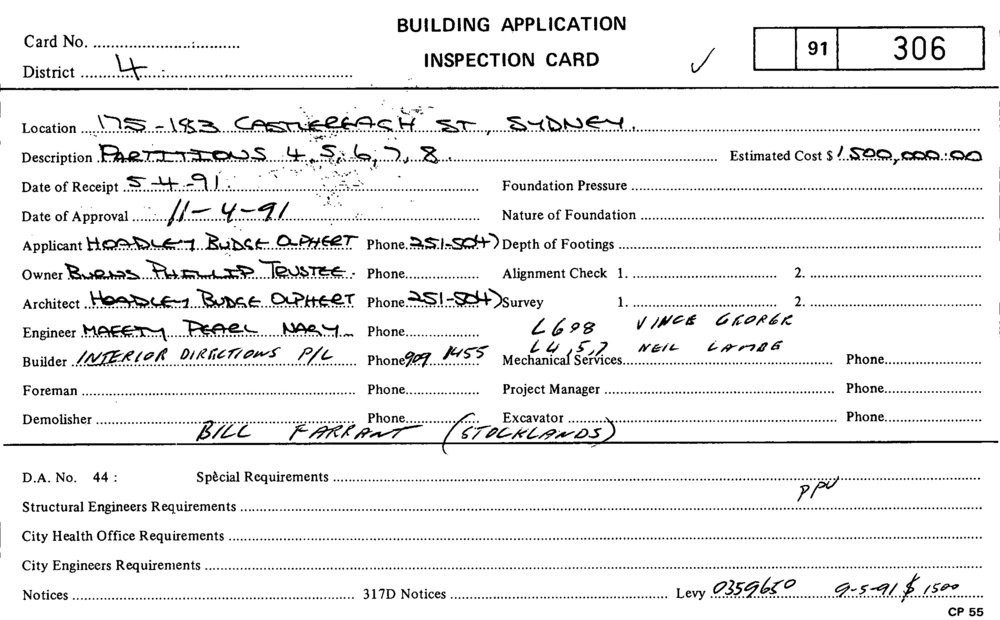 BUILDING APPLICATION
Card No.
INSPECTION CARD
91 306
District 4
Location 175-183 CASTLEREAGH ST, SYDNEY.
Description PARTITIONS 4, 5, 6, 7, 8. Estimated Cost $ 1.500,000.00
Date of Receipt 5-4-91. Foundation Pressure
Date of Approval 11-4-91 Nature of Foundation
Applicant HOADLEY BUDGE OLPHERT Phone 251-5047 Depth of Footings
Owner BURNS PHILLIP TRUSTEE. Phone Alignment Check 1. 2.
Architect HOADLEY BUDGE OLPHERT Phone 251-5047 Survey 1. 2.
Engineer Phone L6&8 VINCE GEORGE
L4,5,7 NEIL LAMBE
Builder INTERIOR DIRECTIONS P/L Phone 909 1455 Mechanical Services Phone
Foreman Phone Project Manager Phone
Demolisher Phone Excavator Phone
BILL FARRANT (STOCKLANDS)
D.A. No. 44 : Special Requirements
PPU
Structural Engineers Requirements
City Health Office Requirements
City Engineers Requirements
Notices 317D Notices Levy 0359650 9-5-91 $ 1500
CP 55